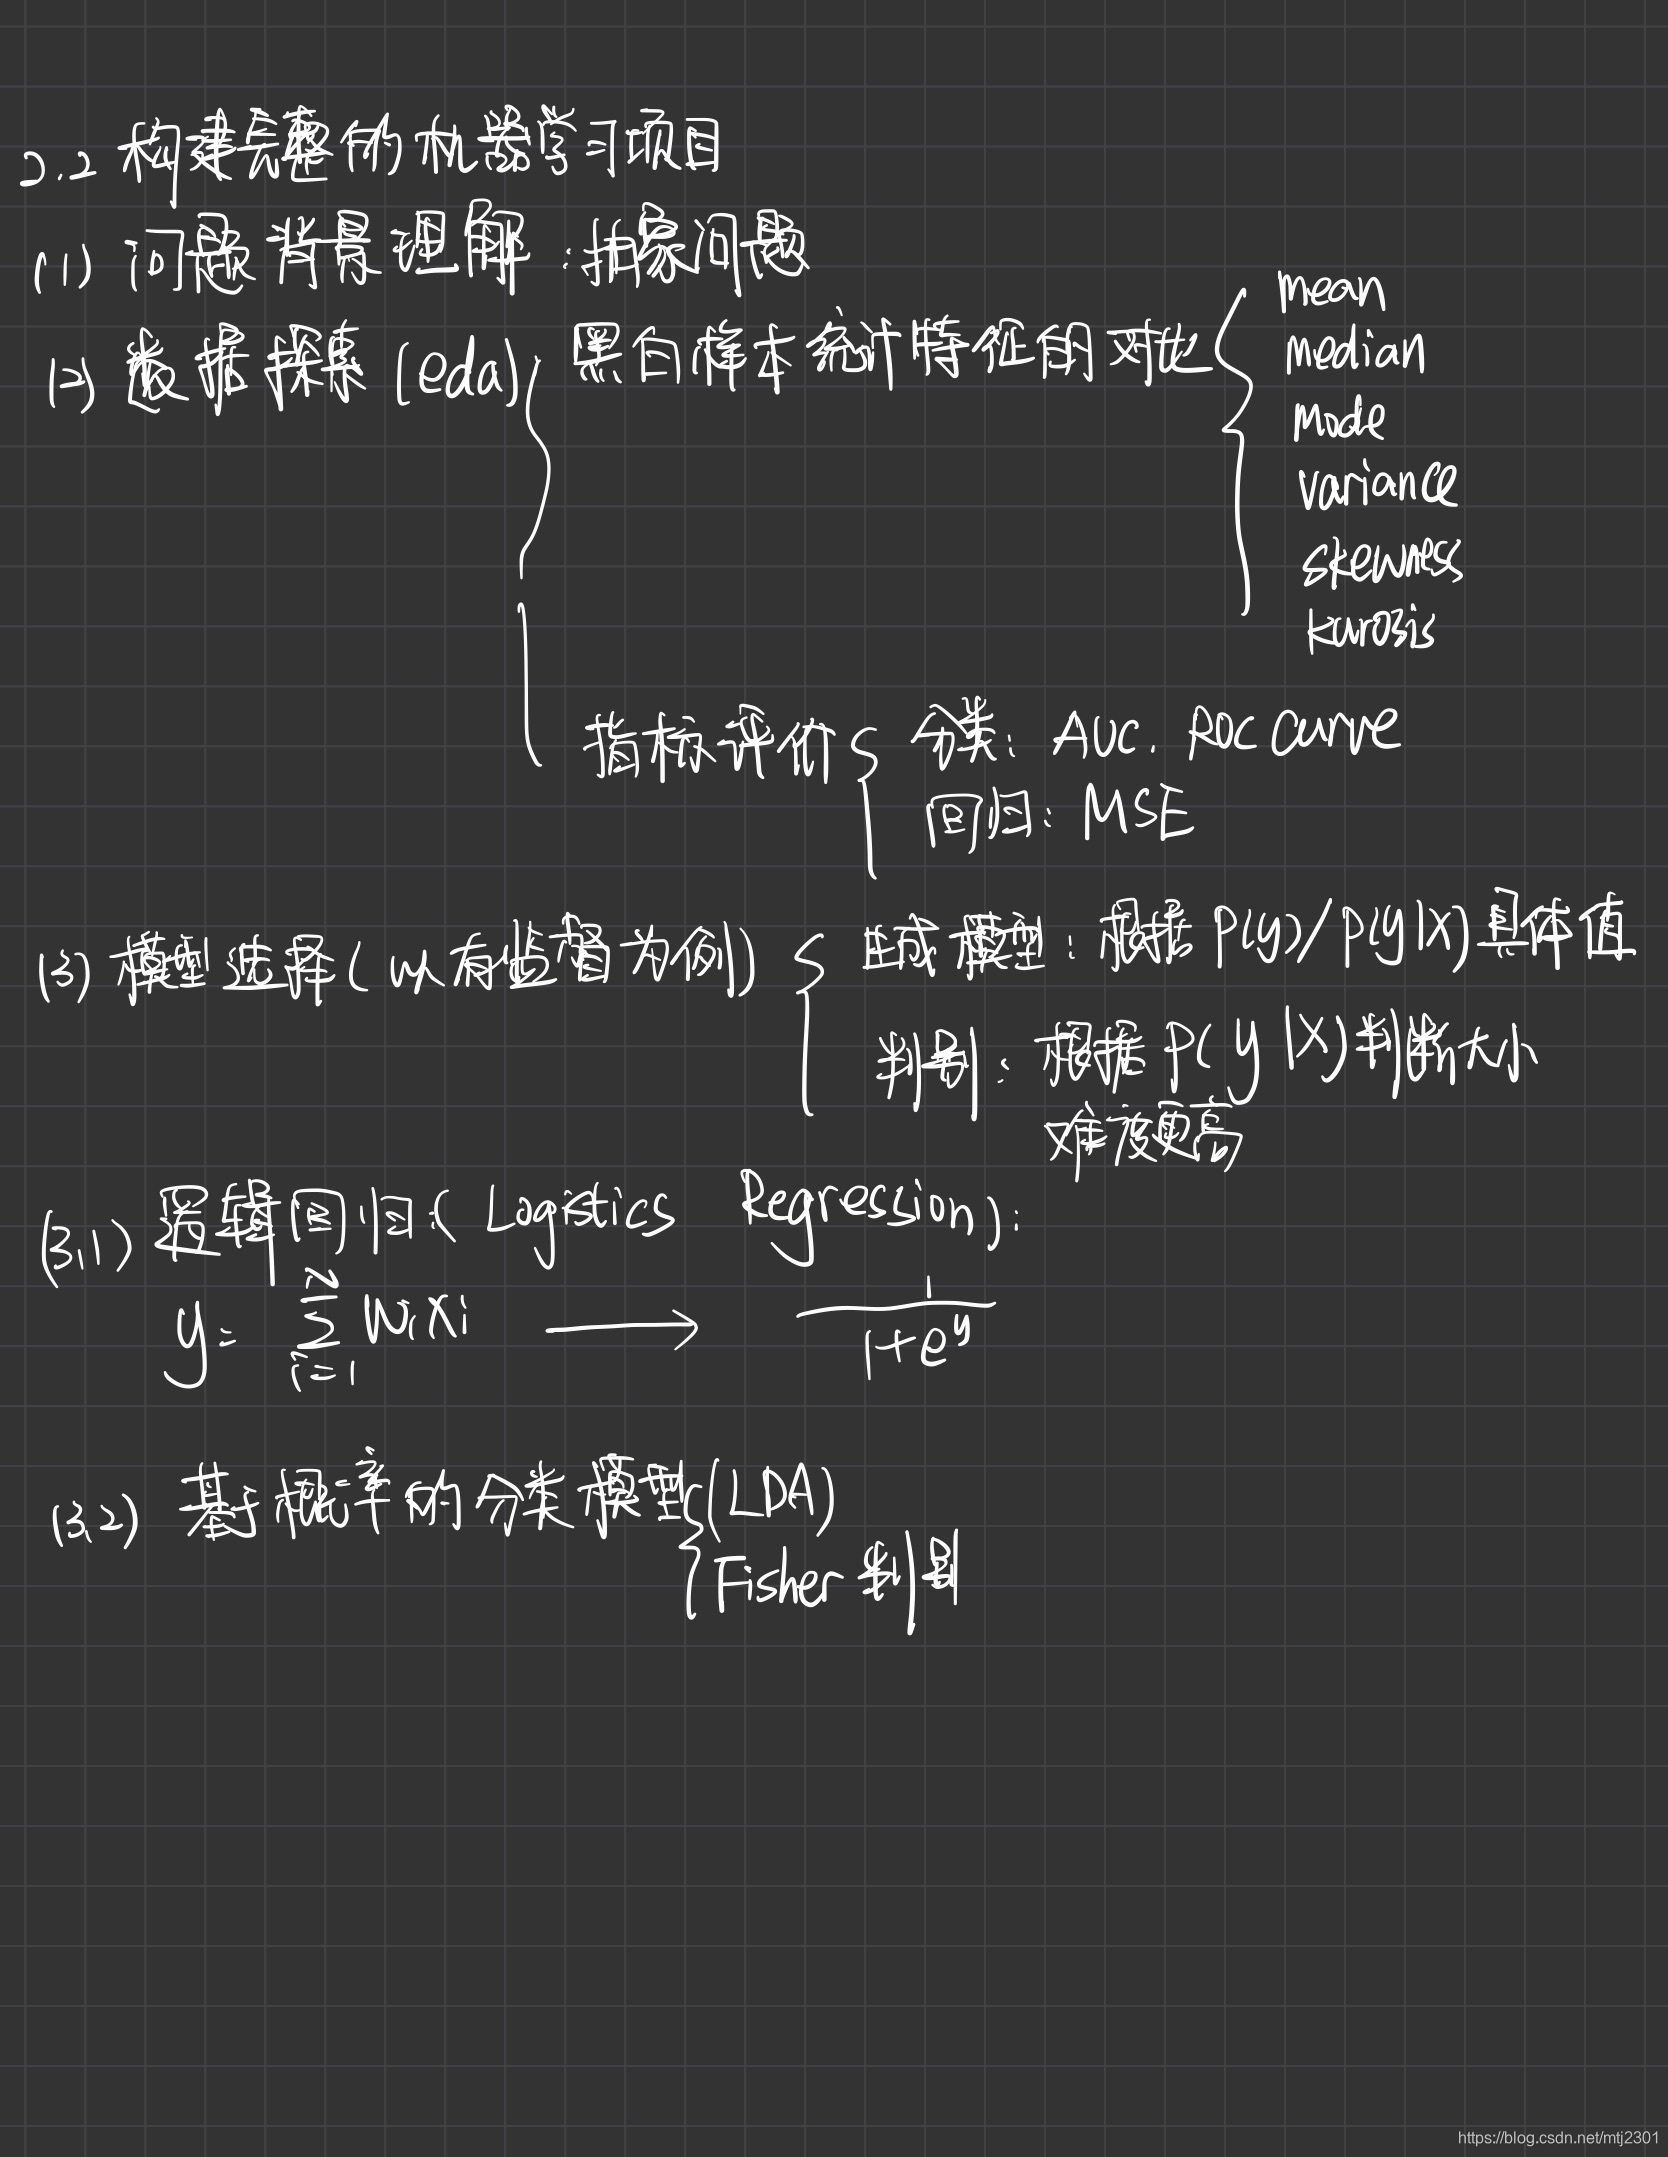 2.2 构建完整的机器学习项目
(1) 问题背景理解:抽象问题
(2) 数据探索(eda) 黑白样本统计特征的对比
mean
median
mode
variance
skewness
kurosis
指标评价 分类: AUC. ROC Curve
回归: MSE
(3) 模型选择(以有监督为例) 生成模型: 根据 P(y)/P(y|X) 具体值
判别: 根据 P(y|X)判断大小
难度更高
(3.1) 逻辑回归:( Logistics Regression):
y= ∑ i=1 N WiXi → 1/(1+e^y)
(3.2) 基于概率的分类模型 (LDA)
Fisher 判别
https://blog.csdn.net/mtj2301